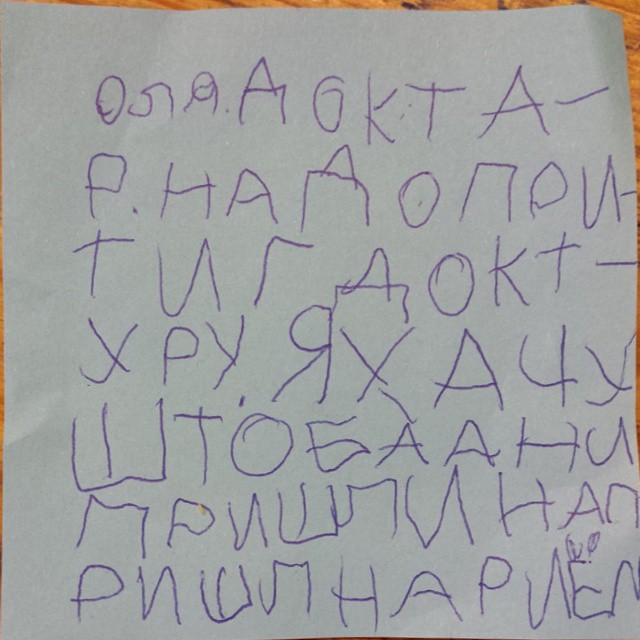 Оля. ДОКТА-
Р. НАДОПРИ-
ТИГДОКТ-
ХРУ. Я ХАЧУ
ШТОБААНИ
ПРИШЛИНАП
РИШЛНАРИЕМ